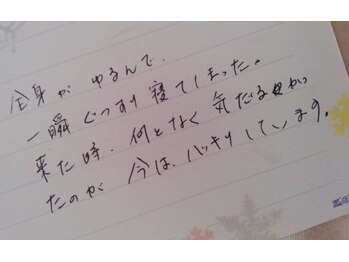 全身がゆるんで、
一瞬ぐっすり寝てしまった。
来た時、何となく気だるかっ
たのが今は、ハッキリしています。